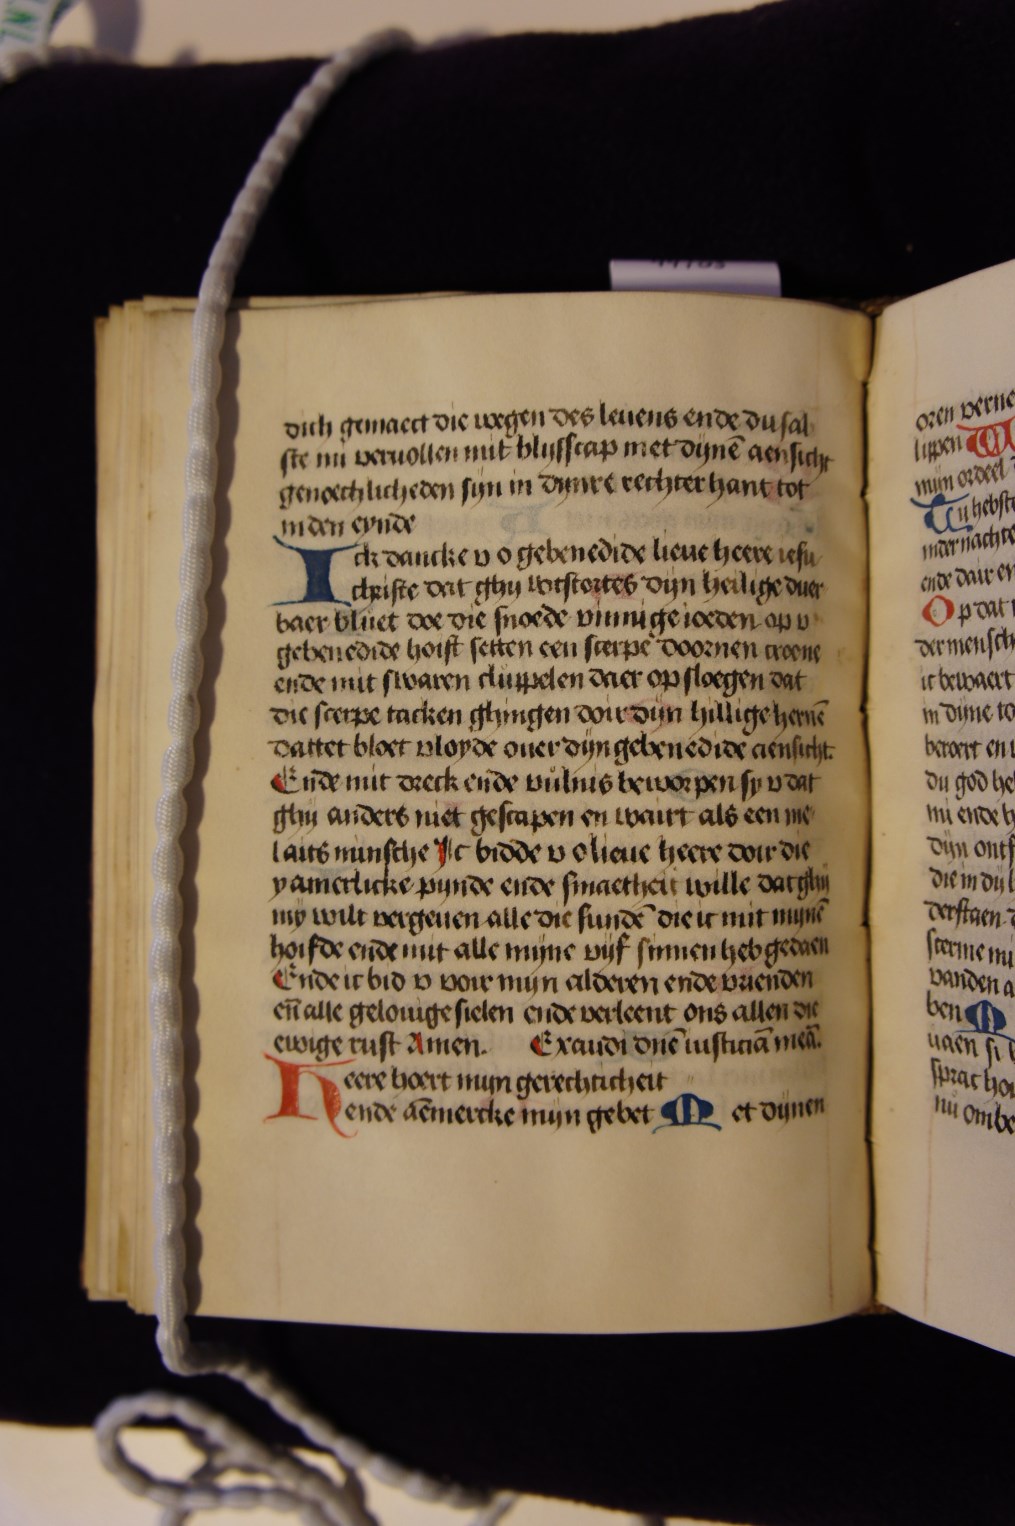 dich gemaect die wegen des leuens ende du sal
ste mi veruollen mit blijsscap met dijnē aensicht
genoechlicheden sijn in dijnre rechter hant tot
inden eynde
Ick dancke v o gebenedide lieue heere iesu
christe dat ghij wtstortes dijn heilige duer
baer bluet doe die snoede vinnige ioeden op v
gebenedide hoift setten een scerpe doornen croene
ende mit swaren cluppelen daer op sloegen dat
die scerpe tacken ghingen doir dijn hillige hernē
dattet bloet vloyde ouer dijn gebenedide aensicht.
Ende mit dreck ende vulnis beworpen sy v dat
ghij anders niet gescapen en wairt als een me
laits minsche Ic bidde v o lieue heere doir die
yamerlicke pynde ende smaetheit wille dat ghij
my wilt vergeuen alle die sundē die ic mit mijnē
hoifde ende mit alle mijne vijf sinnen heb gedaen
Ende ic bid v voir mijn alderen ende vrienden
eñ alle gelouige sielen ende verleent ons allen die
ewige rust Amen. Exaudi dnē iusticiā meā.
Heere hoert mijn gerechticheit
ende aēmercke mijn gebet Met dijnen
oren verne
lippen
mijn ordeel
Tu hebste
inder nachte
ende dair en
Op dat
der mensch
ic bewaert
in dijne
beroert en
du god he
mi ende
dijn ontf
die in dij
derstaen
scerme mi
vanden
ben
uaen si
sprac ho
nu ombe